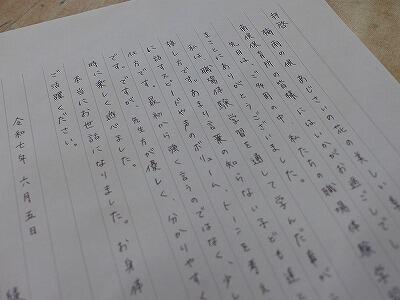 拝啓
梅雨の候、あじさいの花の美しい季
保育所の皆様にはいかがお過ごしで
先日は、ご多用の中、私たちの職場体験学習
まことにありがとうございました。
私は、職場体験学習を通して学んだ事が
です。あまり言葉の知らない子ども達と
接し方です。最初から強く言うのではなく、少し
に話すスピードや声のボリューム、トーンを考え
仕方です。ですが、先生方が優しく、分かりやすく
時に楽しく遊べました。
本当にお世話になりました。お身体
ご活躍ください。
令和七年 六月五日